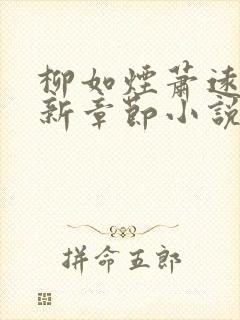 柳如煙蕭遠
新章節小說
拼命五郎